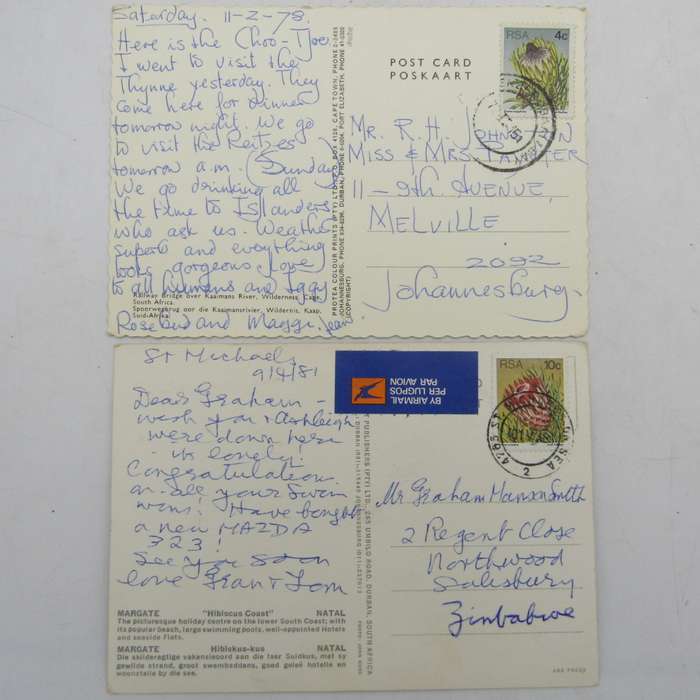 Saturday. 11-2-78.
Here is the Choo-Tjoe
I went to visit the
Thynne yesterday. They
come here for dinner
tomorrow night. We go
to visit the Reitzes
tomorrow a.m. (Sunday)
We go drinking all
the time to Islanders
who ask us. Weather
superb and everything
looks gorgeous. Love
to all humans and Iggy
Rosebud and Maggi. Jean
Railway Bridge over Kaaimans River, Wilderness, Cape,
South Africa.
Spoorwegbrug oor die Kaaimansrivier, Wildernis, Kaap,
Suid-Afrika.
PROTEA COLOUR PRINTS (PTY) LTD. P.O. BOX 4128, CAPE TOWN, PHONE
JOHANNESBURG, PHONE DURBAN, PHONE PORT ELIZABETH, PHONE
(COPYRIGHT)
POST CARD
POSKAART
RSA 4c
Mr. R. H. Johnston
Miss & Mrs
11 - 9th Avenue,
MELVILLE
2092
Johannesburg.
St Michaels
9/4/81
Dear Graham -
wish you & Ashleigh
were down here
its lovely!
Congratulations
on all your swim
wins! Have bought
a new MAZDA
323!
See you soon
love Fran & Tom
MARGATE "Hibiscus Coast" NATAL
The picturesque holiday centre on the lower South Coast; with
its popular beach, large swimming pools, well-appointed Hotels
and seaside Flats.
MARGATE Hibiskus-kus NATAL
Die skilderagtige vakansieoord aan die laer Suidkus, met sy
gewilde strand, groot swembaddens, goed geleë hotelle en
woonstelle by die see.
PUBLISHERS (PTY) LTD., 265 UMBILO ROAD, DURBAN, SOUTH AFRICA
BY AIRMAIL
PER LUGPOS
PAR AVION
RSA 10c
4265 ST. MICHAELS-ON-SEA
2
Mr Graham Manson Smith
2 Regent Close
Northwood
Salisbury
Zimbabwe